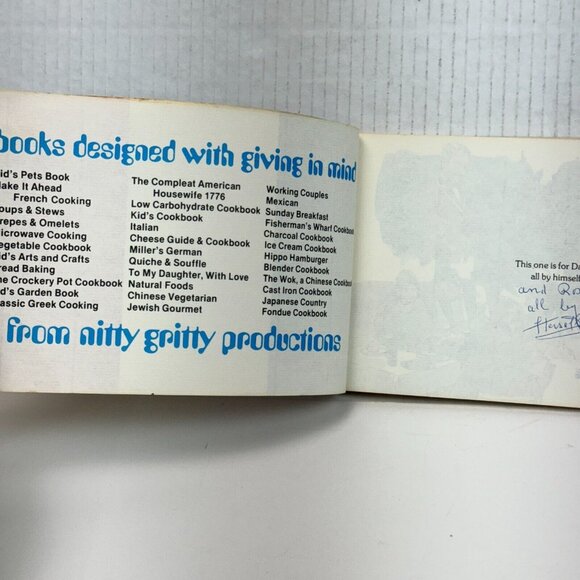 books designed with giving in mind
id's Pets Book
ake It Ahead
French Cooking
oups & Stews
repes & Omelets
icrowave Cooking
egetable Cookbook
id's Arts and Crafts
read Baking
he Crockery Pot Cookbook
id's Garden Book
assic Greek Cooking
The Compleat American
Housewife 1776
Low Carbohydrate Cookbook
Kid's Cookbook
Italian
Cheese Guide & Cookbook
Miller's German
Quiche & Souffle
To My Daughter, With Love
Natural Foods
Chinese Vegetarian
Jewish Gourmet
Working Couples
Mexican
Sunday Breakfast
Fisherman's Wharf Cookbook
Charcoal Cookbook
Ice Cream Cookbook
Hippo Hamburger
Blender Cookbook
The Wok, a Chinese Cookbook
Cast Iron Cookbook
Japanese Country
Fondue Cookbook
from nitty gritty productions
This one is for Da
all by himself
and Ro
all by